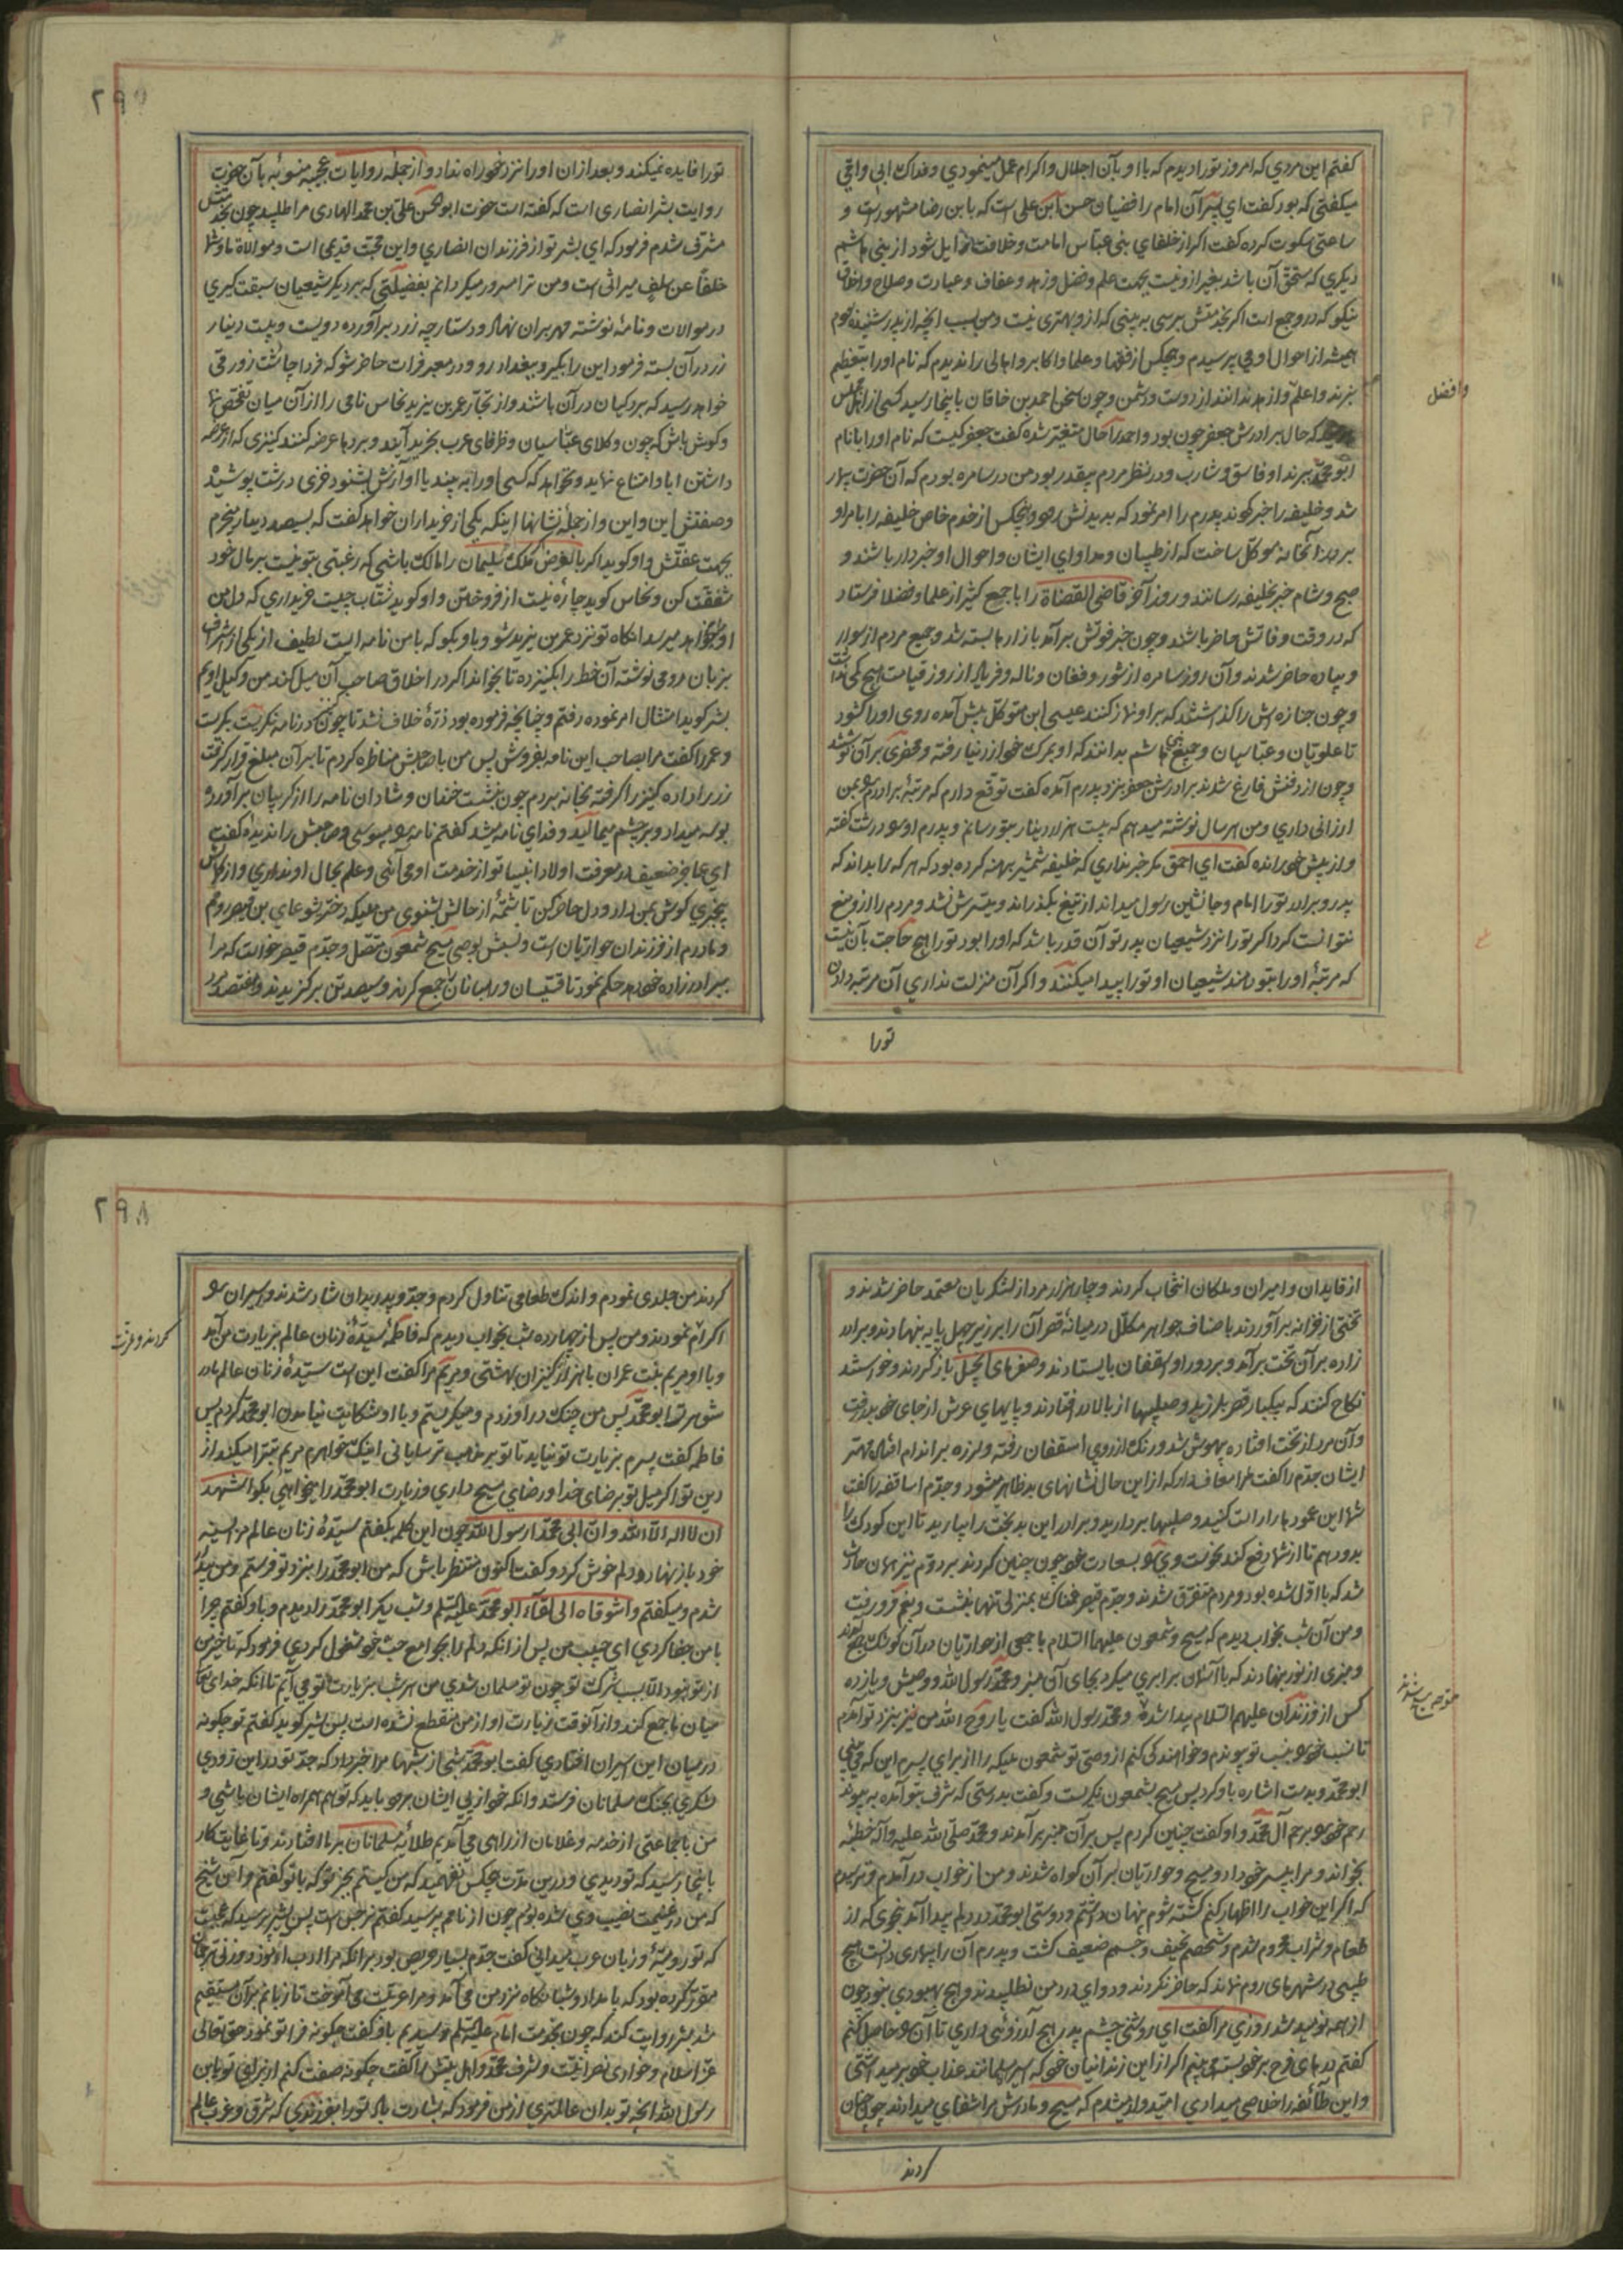 کفتم این مردی که امروز تورا دیدم که با او بآن اجلال و اکرام عمل مینمودی و فداک ابی و امی
میکفتی که بود کفت ای پسر آن امام رافضیان حسن ابن علی است که بابن رضا مشهور است و
ساعتی سکوت کرده کفت اکر از خلفای بنی عباس امامت و خلافت زایل شود از بنی هاشم
دیکری که مستحق آن باشد بغیر از و نیست بجهت علم و فضل و زهد و عفاف و عبادت و صلاح و اخلاق
نیکو که در و جمع است اکر بخدمتش برسی به بینی که از و بهتری نیست و من بسبب آنچه از پدر شنیده بودم
همیشه از احوال او می پرسیدم و هیچکس از فقها و علما و اکابر و اهالی را ندیدم که نام او را بتعظیم
نبرند و اعلم و ازهد ندانند از دوست و دشمن و چون سخن احمد بن خاقان باینجا رسید کسی از اهل مجلس
که حال برادرش جعفر چون بود و احمد را حال متغیر شده کفت جعفر کیست که نام او را با نام
ابو محمد ببرند او فاسق و شارب و در نظر مردم بیقدر بود من در سامره بودم که آن حضرت بیمار
شد و خلیفه را خبر کردند پدرم را امر نمود که بدیدنش رود و پنجکس از خدم خاص خلیفه را بامر او
بر در آنخانه موکل ساخت که از طبیبان و مداوای ایشان و احوال او خبردار باشند و
صبح و شام خبر بخلیفه رسانند و روز آخر قاضی القضاة را با جمع کثیر از علما و فضلا فرستاد
که در وقت وفاتش حاضر باشند و چون خبر فوتش برآمد بازارها بسته شد و جمیع مردم از سوار
و پیاده حاضر شدند و آن روز سامره از شور و فغان و ناله و فریاد از روز قیامت هیچ کمی نداشت
و چون جنازه اش را کذاشتند که بر او نماز کنند عیسی ابن متوکل پیش آمده روی او را کشود
تا علویان و عباسیان و جمیع بنی هاشم بدانند که او بمرک خود از دنیا رفته و محضری بر آن نوشتند
و چون از دفنش فارغ شدند برادرش جعفر بنزد پدرم آمده کفت توقع دارم که مرتبهٔ برادرم بمن
ارزانی داری و من هر سال نوشته میدهم که بیست هزار دینار بتو رسانم و پدرم او را درشت کفته
و از پیش خود رانده کفت ای احمق مکر خبر نداری که خلیفه شمشیر برهنه کرده بود که هر که بداند که
پدر و برادر تورا امام و جانشین رسول میداند از تیغ بکذراند و میسرش نشد و مردم را از و منع
نتوانست کرد اکر تورا نزد شیعیان پدر تو آن قدر باشد که او را بود تورا هیچ حاجت بآن نیست
که مرتبهٔ او را بتو دهند شیعیان او تورا پیدا میکنند و اکر آن منزلت نداری آن مرتبه دادن
تورا
وافضل
٢٩٧
تورا فایده نمیکند و بعد از ان او را نزد خود راه نداد و از جمله روایات عجیبه منسوبه بآن حضرت
روایت بشر انصاری است که کفته است حضرت ابو الحسن علی بن محمد الهادی مرا طلبید چون بخدمتش
مشرف شدم فرمود که ای بشر تو از فرزندان انصاری و این محبت قدیمی است و موالاة ما و شما
خلفا عن سلف میراثی است و من ترا مسرور میکردانم بفضیلتی که بر دیکر شیعیان سبقت کیری
در موالات و نامهٔ نوشته مهر بران نهاد و دستارچه زرد برآورده دویست و بیست دینار
زر در آن بسته فرمود این را بکیر و ببغداد رو و در معبر فرات حاضر شو که فردا چاشت زورقی
خواهد رسید که بردکیان در آن باشند و از تجار عمر بن یزید نخاس نامی را از آن میان تفحص نما
و کوش باش که چون وکلای عباسیان و ظرفای عرب بخرید آیند و بردها عرضه کنند کنیزی که از عرضه
داشتن ابا و امتناع نماید و نخواهد که کسی او را به بیند یا آوازش بشنود خزی درشت پوشیده
و صفتش این و این و از جمله نشانها اینکه یکی از خریداران خواهد کفت که بسیصد دینار میخرم
بجهت عفتش و او کوید اکر بالفرض ملک سلیمان را مالک باشی که رغبتی بتو نیست بر مال خود
شفقت کن و نخاس کوید چاره نیست از فروختن و او کوید شتاب چیست خریداری که دل من
او را خواهد میرسد انکاه تو نزد عمر بن یزید شو و باو بکو که با من نامه ایست لطیف از یکی از اشراف
بزبان رومی نوشته آن خط را بکنیز ده تا بخواند اکر در اخلاق صاحب آن میل کند من وکیل اویم
بشر کوید امتثال امر نموده رفتم و چنانچه فرموده بود ذرهٔ خلاف نشد تا چون کنیز در نامه نکریست بکریست
و عمر را کفت مرا بصاحب این نامه بفروش پس من با صاحبش مناظره کردم تا بر آن مبلغ قرار کرفت
زر را داده کنیز را کرفته بخانه بردم چون بنشست خندان و شادان نامه را از کریبان برآورد و
بوسه میداد و بر چشم میمالید و فدای نامه میشد کفتم نامه میبوسی و صاحبش را ندیدهٔ کفت
ای عاجز ضعیف در معرفت اولاد انبیا تو از خدمت او می آئی و علم بحال او نداری و از کمالش
بیخبری کوش بمن دار و دل حاضر کن تا شمهٔ از حالش بشنوی من ملیکه دختر یشوعای بن قیصر رومم
و مادرم از فرزندان حواریان است و نسبش بوصی مسیح شمعون متصل و جدم قیصر خواست که مرا
ببرادرزاده خود دهد حکم نمود تا قسیسان و رهبانان جمع کردند و سیصد تن برکزیدند و هفتصد مرد
از قایدان و امیران و ملکان انتخاب کردند و چار هزار مرد از لشکریان معتمد حاضر شدند و
تختی از خزانه برآوردند باصناف جواهر مکلل در میانهٔ قصر آن را بر زبر چهل پایه بنهادند و برادر
زاده بر آن تخت برآمد و بر دور او اسقفان بایستادند و صفرهای انجیل باز کردند و خواستند
نکاح کنند که بیکبار قصر بلرزید و صلیبها از بالا در افتادند و پایهای عرش از جای خود برفت
و آن مرد از تخت افتاده بیهوش شد و رنک از روی اسقفان رفته و لرزه بر اندام افتاد مهتر
ایشان جدم را کفت مرا معاف دار که از این حال نشانهای بد ظاهر میشود و جدم اساقفه را کفت
شما این عمودها را راست کنید و صلیبها بردارید و برادر این بدبخت را بیارید تا این کودک را
بدو دهم تا از شما دفع کند نحوست وی را بسعادت خود چون چنین کردند بر دوم نیز همان حادث
شد که با اول شده بود و مردم متفرق شدند و جدم قیصر غمناک بمنزل تنها بنشست و بغم فرو رفت
و من آن شب بخواب دیدم که مسیح و شمعون علیهما السلام با جمعی از حواریان در آن کوشک جمع آمدند
و منبری از نور بنهادند که با آسمان برابری میکرد بجای آن منبر و محمد رسول الله و وصیش و یازده
کس از فرزندان علیهم السلام پیدا شدند و محمد رسول الله کفت یا روح الله من نیز بنزد تو آمدم
تا نسب خود بنسب تو پیوندم و خواهندکی کنم از وصی تو شمعون ملیکه را از برای پسرم این که می بینی
ابو محمد و بدست اشاره باو کرد پس مسیح بشمعون نکریست و کفت بدرستی که شرف بتو آمده به پیوند
رحم خود برحم آل محمد و او کفت چنین کردم پس بر آن منبر برآمدند و محمد صلی الله علیه و آله خطبه
بخواند و مرا به پسر خود داد و مسیح و حواریان بر آن کواه شدند و من از خواب درآمدم و ترسیدم
که اکر این خواب را اظهار کنم کشته شوم پنهان داشتم و دوستی ابو محمد در دلم پیدا آمد نحوی که از
طعام و شراب محروم شدم و شخصم نحیف و جسمم ضعیف کشت و پدرم آن را بیماری دانست هیچ
طبیبی در شهرهای روم نماند که حاضر نکردند و دوای درد من نطلبیدند و هیچ بهبودی نبود چون
از همه نومید شد روزی مرا کفت ای روشنی چشم پدر هیچ آرزوئی داری تا آن را حاصل کنم
کفتم درهای فرح بر خود بسته می بینم اکر از این زندانیان خود که اسیر مسلمانند عذاب خود بر میداشتی
و این طائفه را خلاصی میدادی امیدوار میشدم که مسیح و مادرش مرا شفای میدادند چون چنان
کردند
٢٩٨
کردند من جلدی نمودم و اندک طعامی تناول کردم و جد و پدر بدان شاد شدند و اسیران را
اکرام نمودند و من پس از چهارده شب بخواب دیدم که فاطمه سیدهٔ زنان عالم بزیارت من آمد
و با او مریم بنت عمران با هزار کنیزان بهشتی و مریم مرا کفت این است سیدهٔ زنان عالم مادر
شوهر تو ابو محمد پس من چنک در او زدم و میکریستم و با او شکایت نیامدن ابو محمد کردم پس
فاطمه کفت پسرم بزیارت تو نیاید تا تو بر مذهب ترسایانی اینک خواهرم مریم تبرا میکند از
دین تو اکر میل تو برضای خدا و رضای مسیح داری و زیارت ابو محمد را میخواهی بکو اشهد
ان لا اله الا الله و ان ابی محمدا رسول الله چون این کلمه بکفتم سیدهٔ زنان عالم مرا بسینه
خود باز نهاد و دلم خوش کرد و کفت اکنون منتظر باش که من ابو محمد را بنزد تو فرستم و من بیدار
شدم و میکفتم واشوقاه الی لقاء ابو محمد علیه السلم و شب دیکر ابو محمد را دیدم و باو کفتم چرا
با من جفا کردی ای حبیب من پس از انکه دلم را بجوامع حب خود مشغول کردی فرمود که تاخیر من
از تو نبود الا بسبب شرک تو چون تو مسلمان شدی من هر شب بزیارت تو می آیم تا آنکه خدای تعالی
میان ما جمع کند و از آنوقت زیارت او از من منقطع نشده است پس بشر کوید کفتم تو چکونه
در میان این اسیران افتادی کفت ابو محمد شبی از شبها مرا خبر داد که جد تو در این زودی
لشکری بجنک مسلمانان فرستد و انکه خود از پی ایشان برود باید که تو هم همراه ایشان باشی و
من با جماعتی از خدمه و غلامان از راهی می آمدیم طلایه مسلمانان بر ما افتادند و تا غایت کار
باینجا رسید که تو دیدی و در این مدت هیچکس نفهمید که من کیستم بجز تو که با تو کفتم و آن شیخ
که من در غنیمت نصیب وی شده بودم چون از نامم پرسید کفتم نرجس است پس بشر پرسید که عجبست
که تو رومیهٔ و زبان عرب میدانی کفت جدم بسیار حریص بود بر انکه مرا ادب آموزد و زنی ترجمان
مقرر کرده بود که بامداد و شبانکاه نزد من می آمد و مرا عربیت می آموخت تا زبانم بر آن مستقیم
شد بشر روایت کند که چون بخدمت امام علیه السلم رسیدیم باو کفت چکونه فرا تو نمود حق تعالی
عز اسلام و خواری نصرانیت و شرف محمد و اهل بیتش را کفت چکونه صفت کنم از برای تو یابن
رسول الله آنچه تو بدان عالمتری از من فرمود که بشارت باد تورا بفرزندی که شرق و غرب عالم